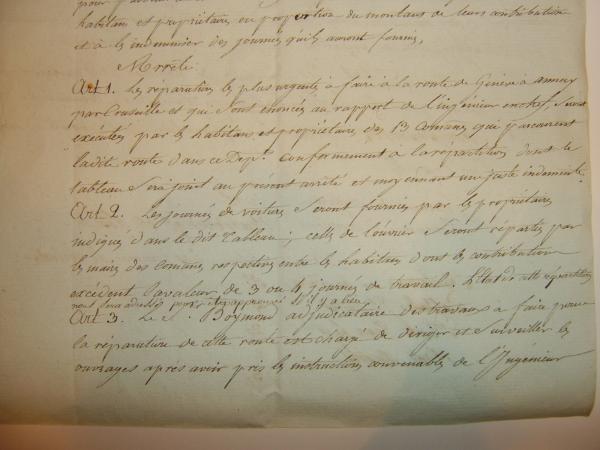 habitans et propriétaires en proportion du montant de leurs contribution
et à les indemniser des journées qu'ils auront fournies,
Arrête
Art 1. Les réparations les plus urgentes à faire à la route de Genève à annecy
par Cruseille et qui sont énoncés au rapport de l'ingénieur en chef, seront
exécutées par les habitans et propriétaires des 13 Comunes qui parcourent
ladite route dans ce Dept. Conformement à la répartition dont le
tableau sera joint au présent arrêté et moyennant une juste indemnité.
Art 2. Les journées de voitures seront fournies par les propriétaires
indiqués dans le dit Tableau; celles de l'ouvrier seront réparties par
les maires des Comunes respectives entre les habitans dont les contribution
excédent la valeur de 3 ou 4 journées de travail. L'Etat de cette répartition
nous sera adressé pour être approuvé s'il y a lieu
Art 3. Le S. Boymond adjudicataire des travaux à faire pour
la réparation de cette route est chargé de diriger et surveiller les
ouvrages après avoir pris les instructions convenables de l'Ingénieur